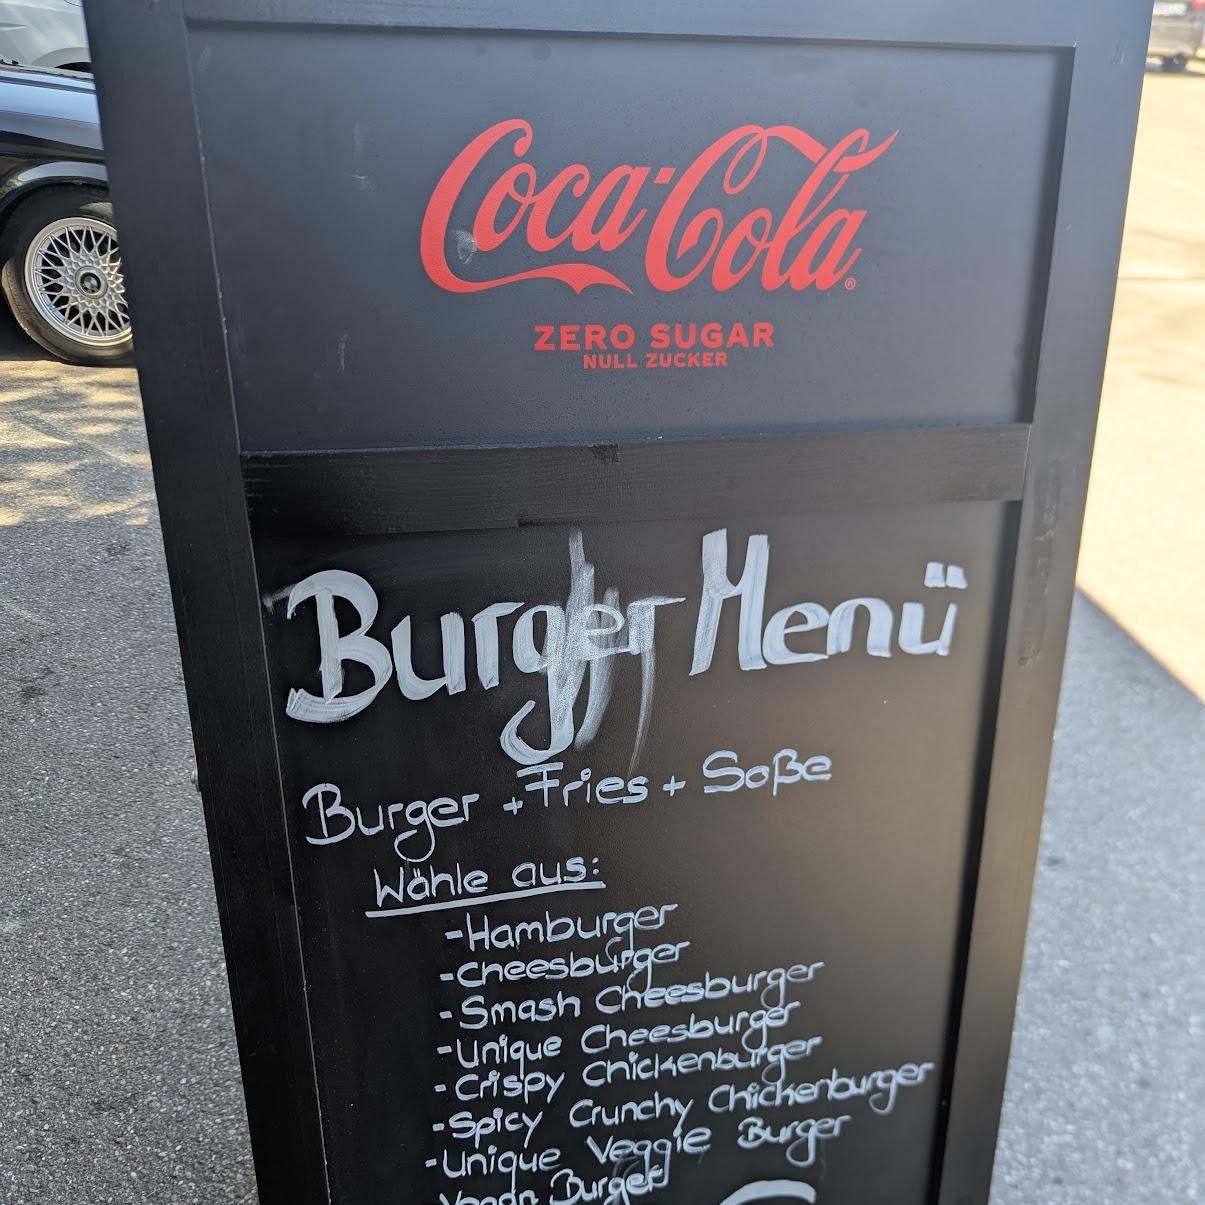 Coca-Cola®
ZERO SUGAR
NULL ZUCKER
Burger Menü
Burger + Fries + Soße
Wähle aus:
-Hamburger
-Cheesburger
-Smash Cheesburger
-Unique Cheesburger
-Crispy Chickenburger
-Spicy Crunchy Chickenburger
-Unique Veggie Burger
Vegan Burger